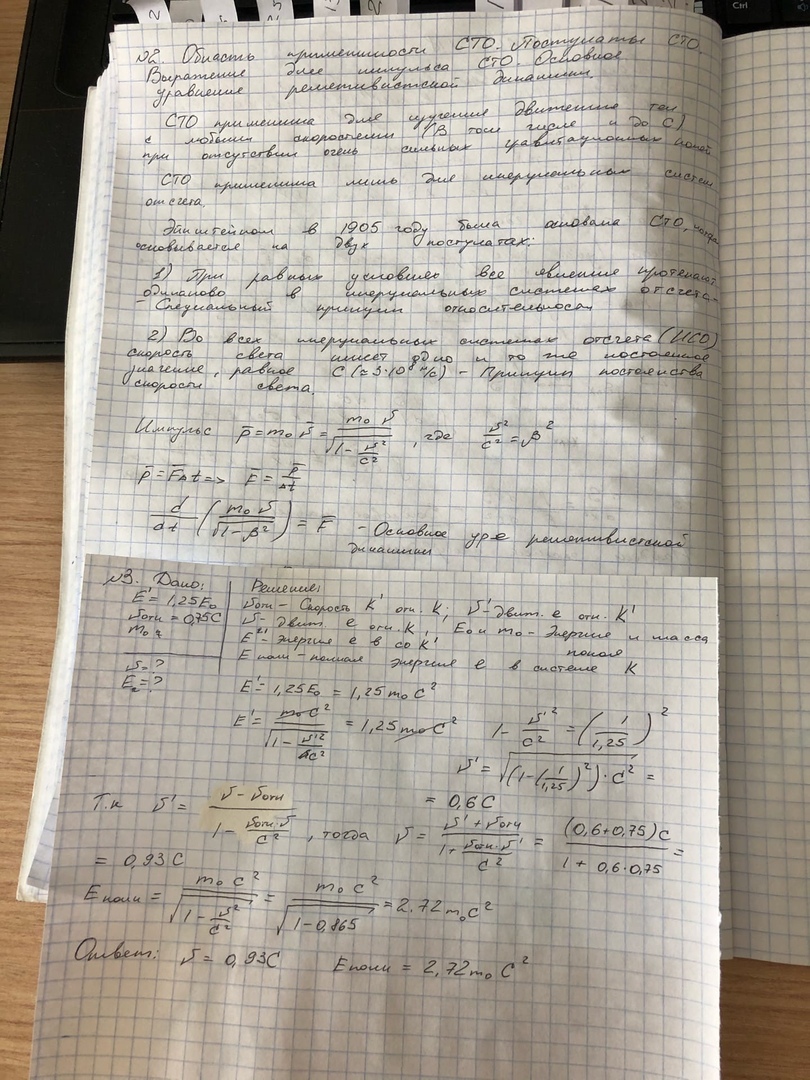 Ctrl
№2. Область применимости СТО. Постулаты СТО.
Выражение для импульса СТО. Основное
уравнение релятивистской динамики
СТО применима для изучения движения тел
с любыми скоростями (В том числе и до С)
при отсутствии очень сильных гравитационных полей
СТО применима лишь для инерциальных систем
отсчета.
Эйнштейном в 1905 году была основана СТО, когда
основывается на двух постулатах:
1) При равных условиях все явления протекают
одинаково в инерциальных системах отсчета
- Специальный принцип относительности
2) Во всех инерциальных системах отсчета (ИСО)
скорость света имеет одно и то же постоянное
значение, равное С (≈3·10⁸ м/с) - Принцип постоянства
скорости света.
Импульс p̄ = m₀ v̄ = m₀ v̄ / √(1 - v²/c²), где v²/c² = β²
p̄ = F̄Δt => F̄ = p̄/Δt
d/dt (m₀ v̄ / √(1-β²)) = F̄ - Основное ур-е релятивистской
динамики
№3. Дано:
E' = 1,25E₀
vотн = 0,75C
m₀
v = ?
E = ?
Решение:
vотн - Скорость K' отн. K; v' - движ. e отн. K'
v - движ. e отн. K, E₀ и m₀ - Энергия и масса
покоя
E' - Энергия e в со K'
E полн - полная энергия e в системе K
E' = 1,25E₀ = 1,25 m₀ C²
E' = m₀C² / √(1 - v'²/c²) = 1,25 m₀C² 1 - v'²/c² = (1/1,25)²
v' = √((1-(1/1,25)²)·C²) =
= 0,6C
Т.к v' = (v - vотн) / (1 - vотн·v/c²), тогда v = (v' + vотн) / (1 + vотн·v'/c²) = (0,6+0,75)C / (1 + 0,6·0,75) =
= 0,93C
E полн = m₀C² / √(1 - v²/c²) = m₀C² / √(1-0,865) = 2.72 m₀C²
Ответ: v = 0,93C E полн = 2,72 m₀C²